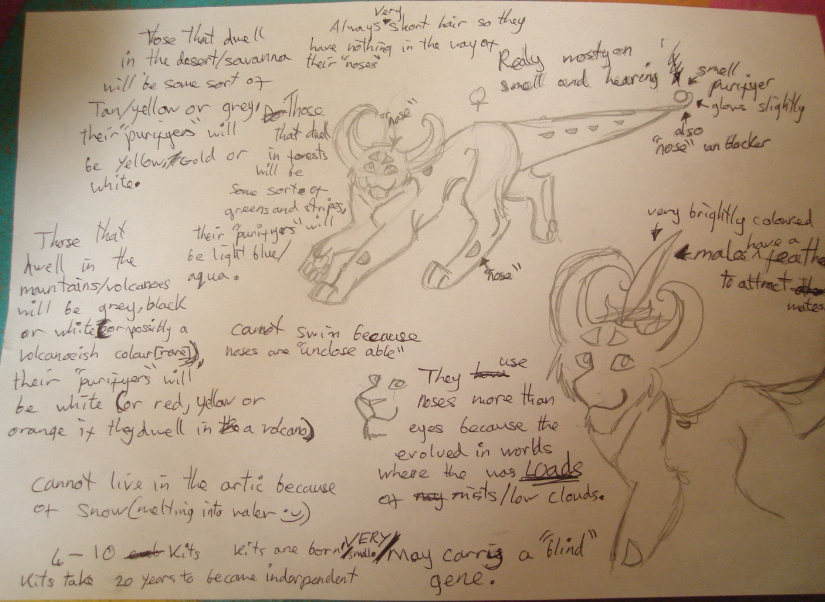 Those that dwell
in the desert/savanna
will be some sort of
Tan/yellow or grey,
their "purifyers" will
be yellow, gold or
white.
Always very short hair so they
have nothing in the way of
their "noses"
Relly mostly on
smell and hearing
smell
purifyer
glows slightly
also
"nose" unblocker
"nose"
Those
that dwell
in forests
will be
some sort of
greens and stripes,
their "purifyers" will
be light blue/
aqua.
"nose"
very brightly coloured
males have a feather
to attract
mates
Those that
dwell in the
mountains/volcanoes
will be grey, black
or white (or possibly a
volcanoeish colour [rare]),
their "purifyers" will
be white (or red, yellow or
orange if they dwell in a volcano)
cannot swim because
noses are "unclose able"
They use
noses more than
eyes because the
evolved in worlds
where the was LOADS
of mists/low clouds.
Cannot live in the artic because
of snow (melting into water :))
4-10 Kits
Kits are born VERY small
Kits take 20 years to become indarpendent
May carry a "blind"
gene.